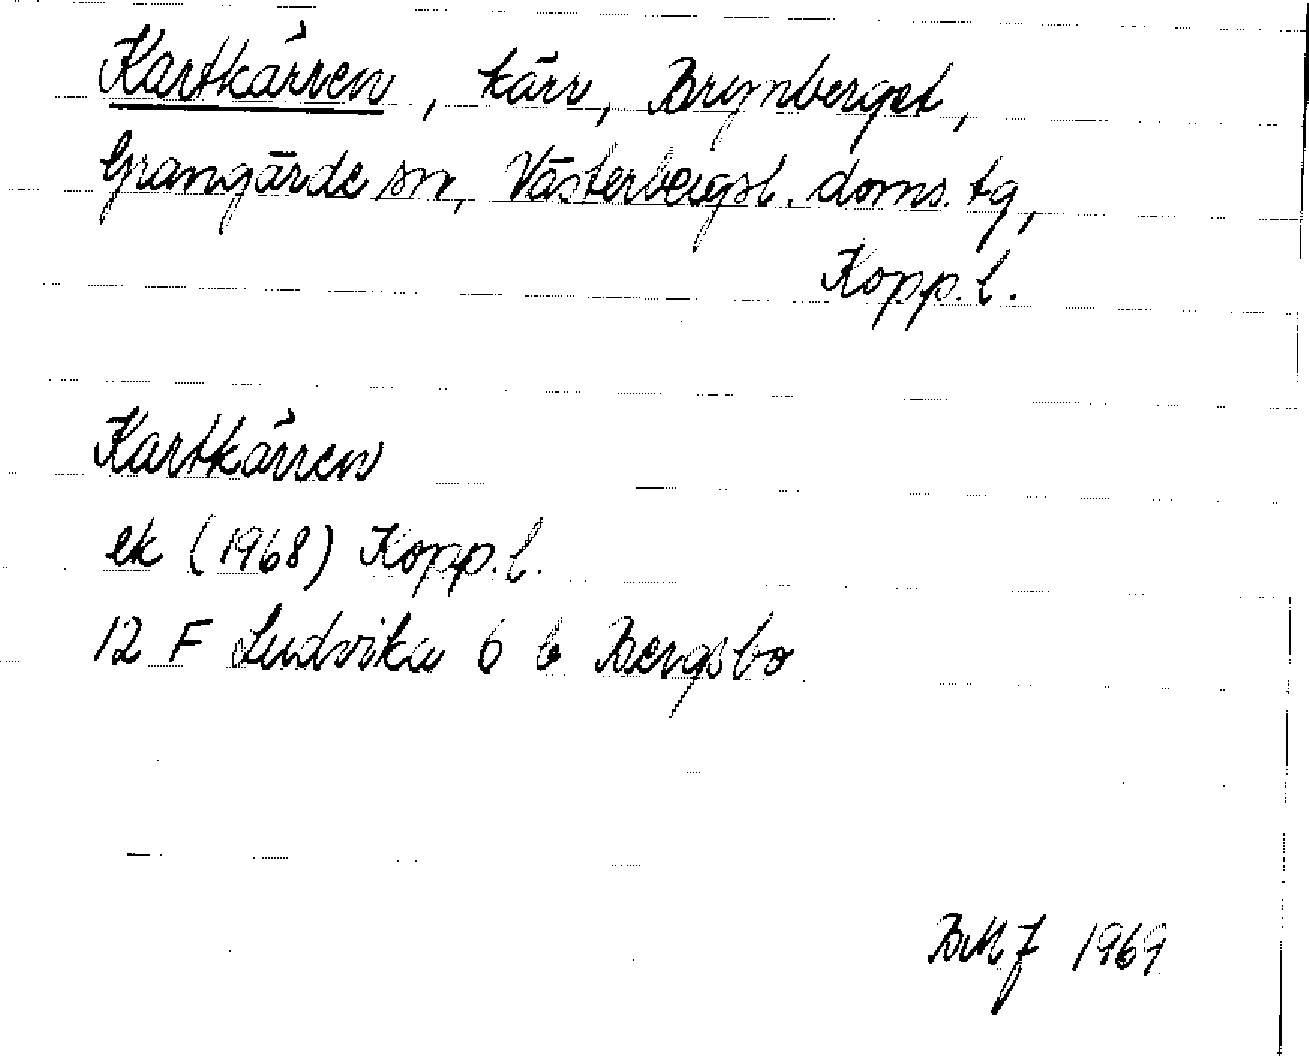 Kartkärren, kärr, Brynberget,
Grangärde sn, Västerbergsl. doms. tg,
Kopp. l.
Kartkärren
ek (1968) Kopp. l.
12 F Ludvika 6 b Bergsbo
BMJ 1969